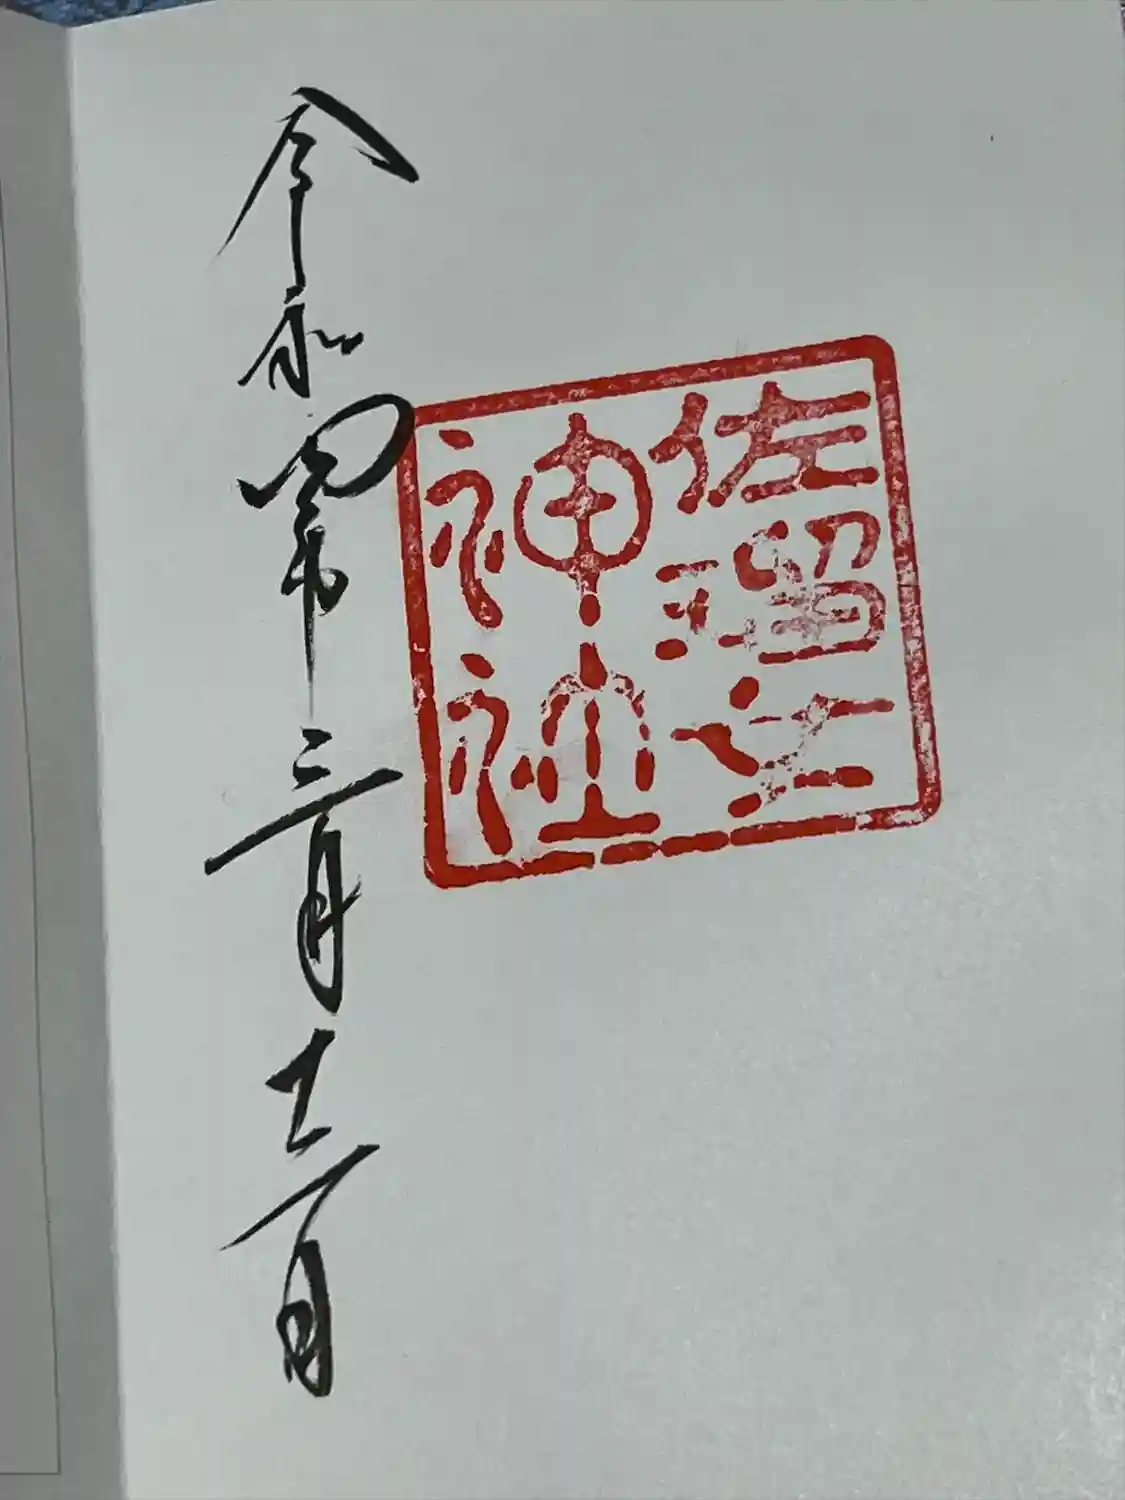 佐瑠女
神社
令和四年三月十二日